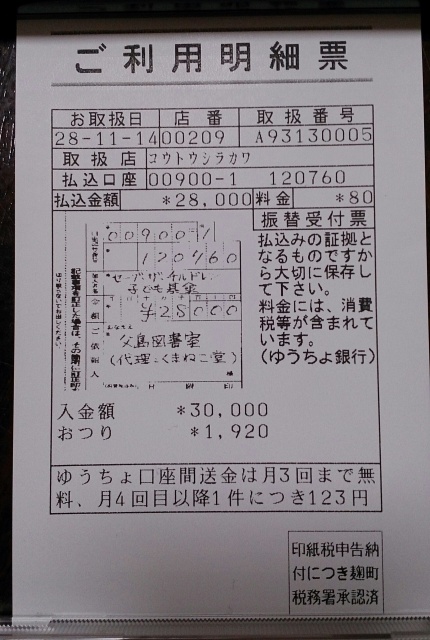 ご利用明細票
お取扱日 店番 取扱番号
28-11-14 00209 A93130005
取扱店 コウトウシラカワ
払込口座 00900-1 120760
払込金額 *28,000 料金 *80
振替受付票
払込みの証拠と
なるものですか
ら大切に保存し
て下さい。
料金には、消費
税等が含まれて
います。
(ゆうちょ銀行)
00900 1
120760
セーブザチルドレン
子ども基金
金額
¥28000
ご依頼人
父島図書室
(代理:くまねこ堂)
入金額 *30,000
おつり *1,920
ゆうちょ口座間送金は月3回まで無
料、月4回目以降1件につき123円
印紙税申告納
付につき麹町
税務署承認済